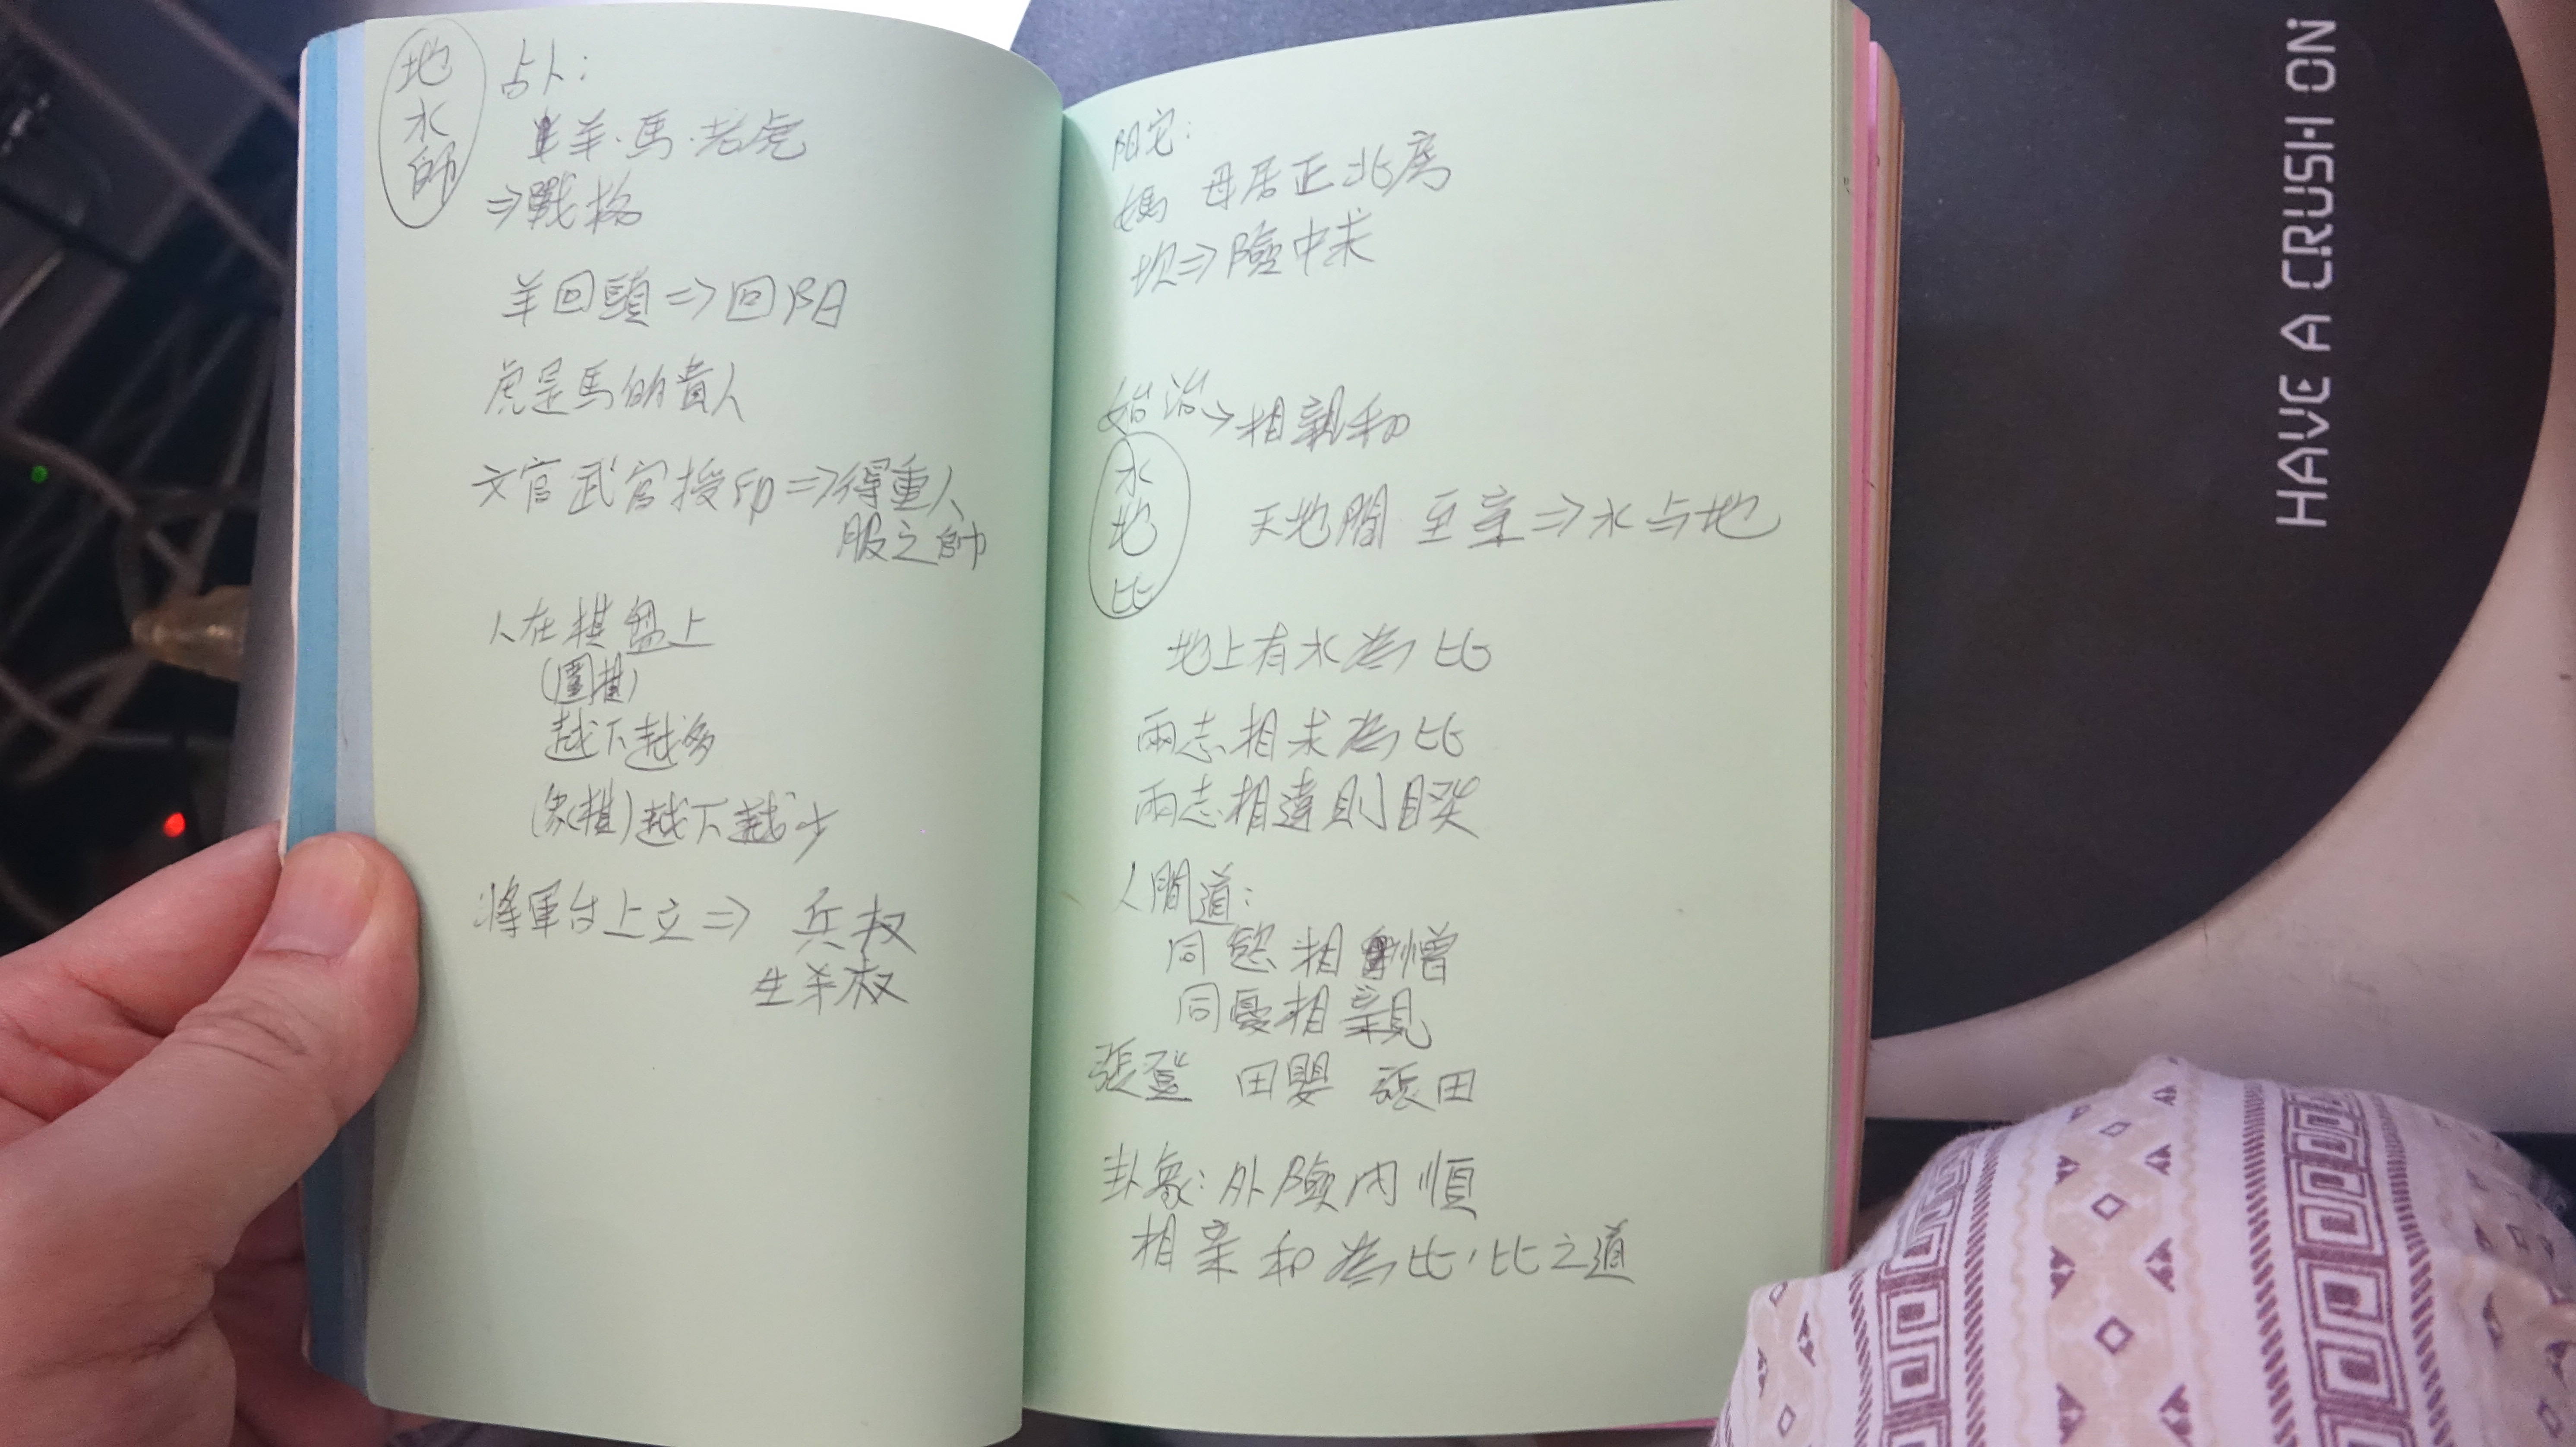 地水師
占卜:
羊.馬.老虎
⇒戰格
羊回頭⇒回阳
虎是馬的貴人
文官武官授印⇒得重人
服之帥
人在棋盤上
(圍棋)
越下越多
(象棋)越下越少
將軍台上立⇒ 兵权
生杀权
阳宅:
媽 母居正北房
坎⇒險中求
始治→相親和
水地比
天地間 至亲⇒水与地
地上有水為比
兩志相求為比
兩志相違則睽
人間道:
同慾相憎
同憂相親
張登 田嬰 張田
卦象:外險內順
相亲和為比,比之道
HAVE A CRUSH ON